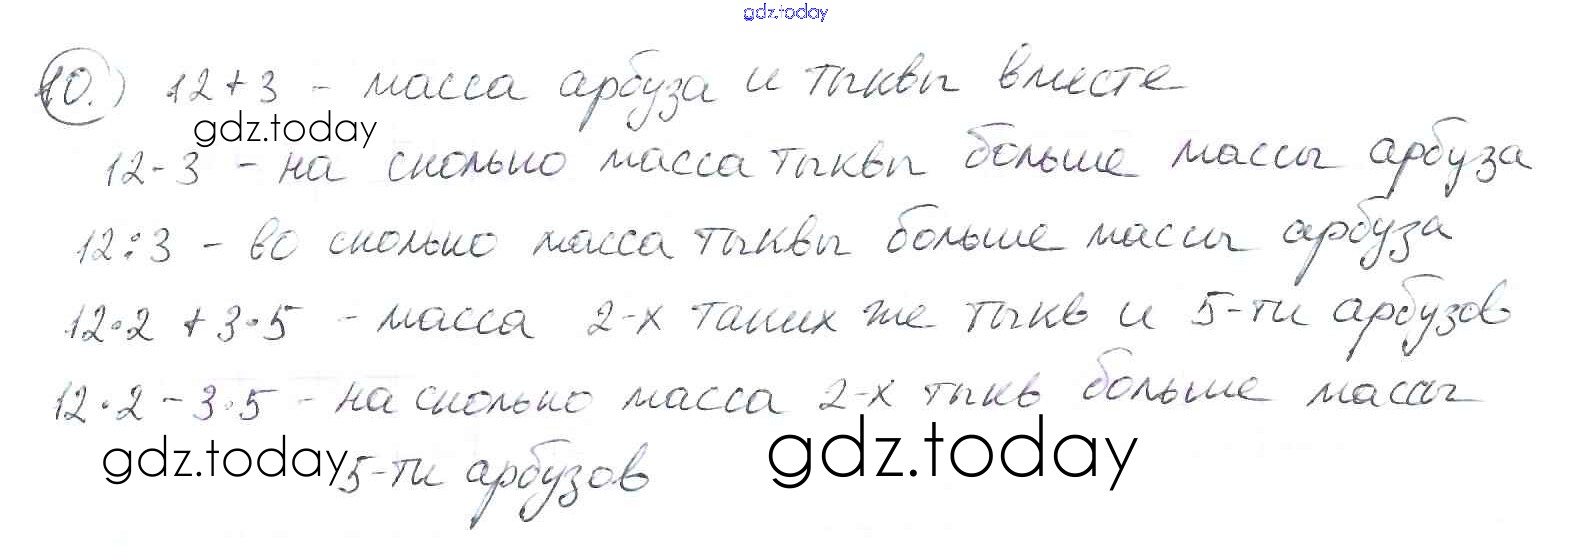 gdz.today
10.) 12+3 - масса арбуза и тыквы вместе
gdz.today
12-3 - на сколько масса тыквы больше массы арбуза
12:3 - во сколько масса тыквы больше массы арбуза
12·2 + 3·5 - масса 2-х таких же тыкв и 5-ти арбузов
12·2 - 3·5 - на сколько масса 2-х тыкв больше массы
gdz.today 5-ти арбузов gdz.today